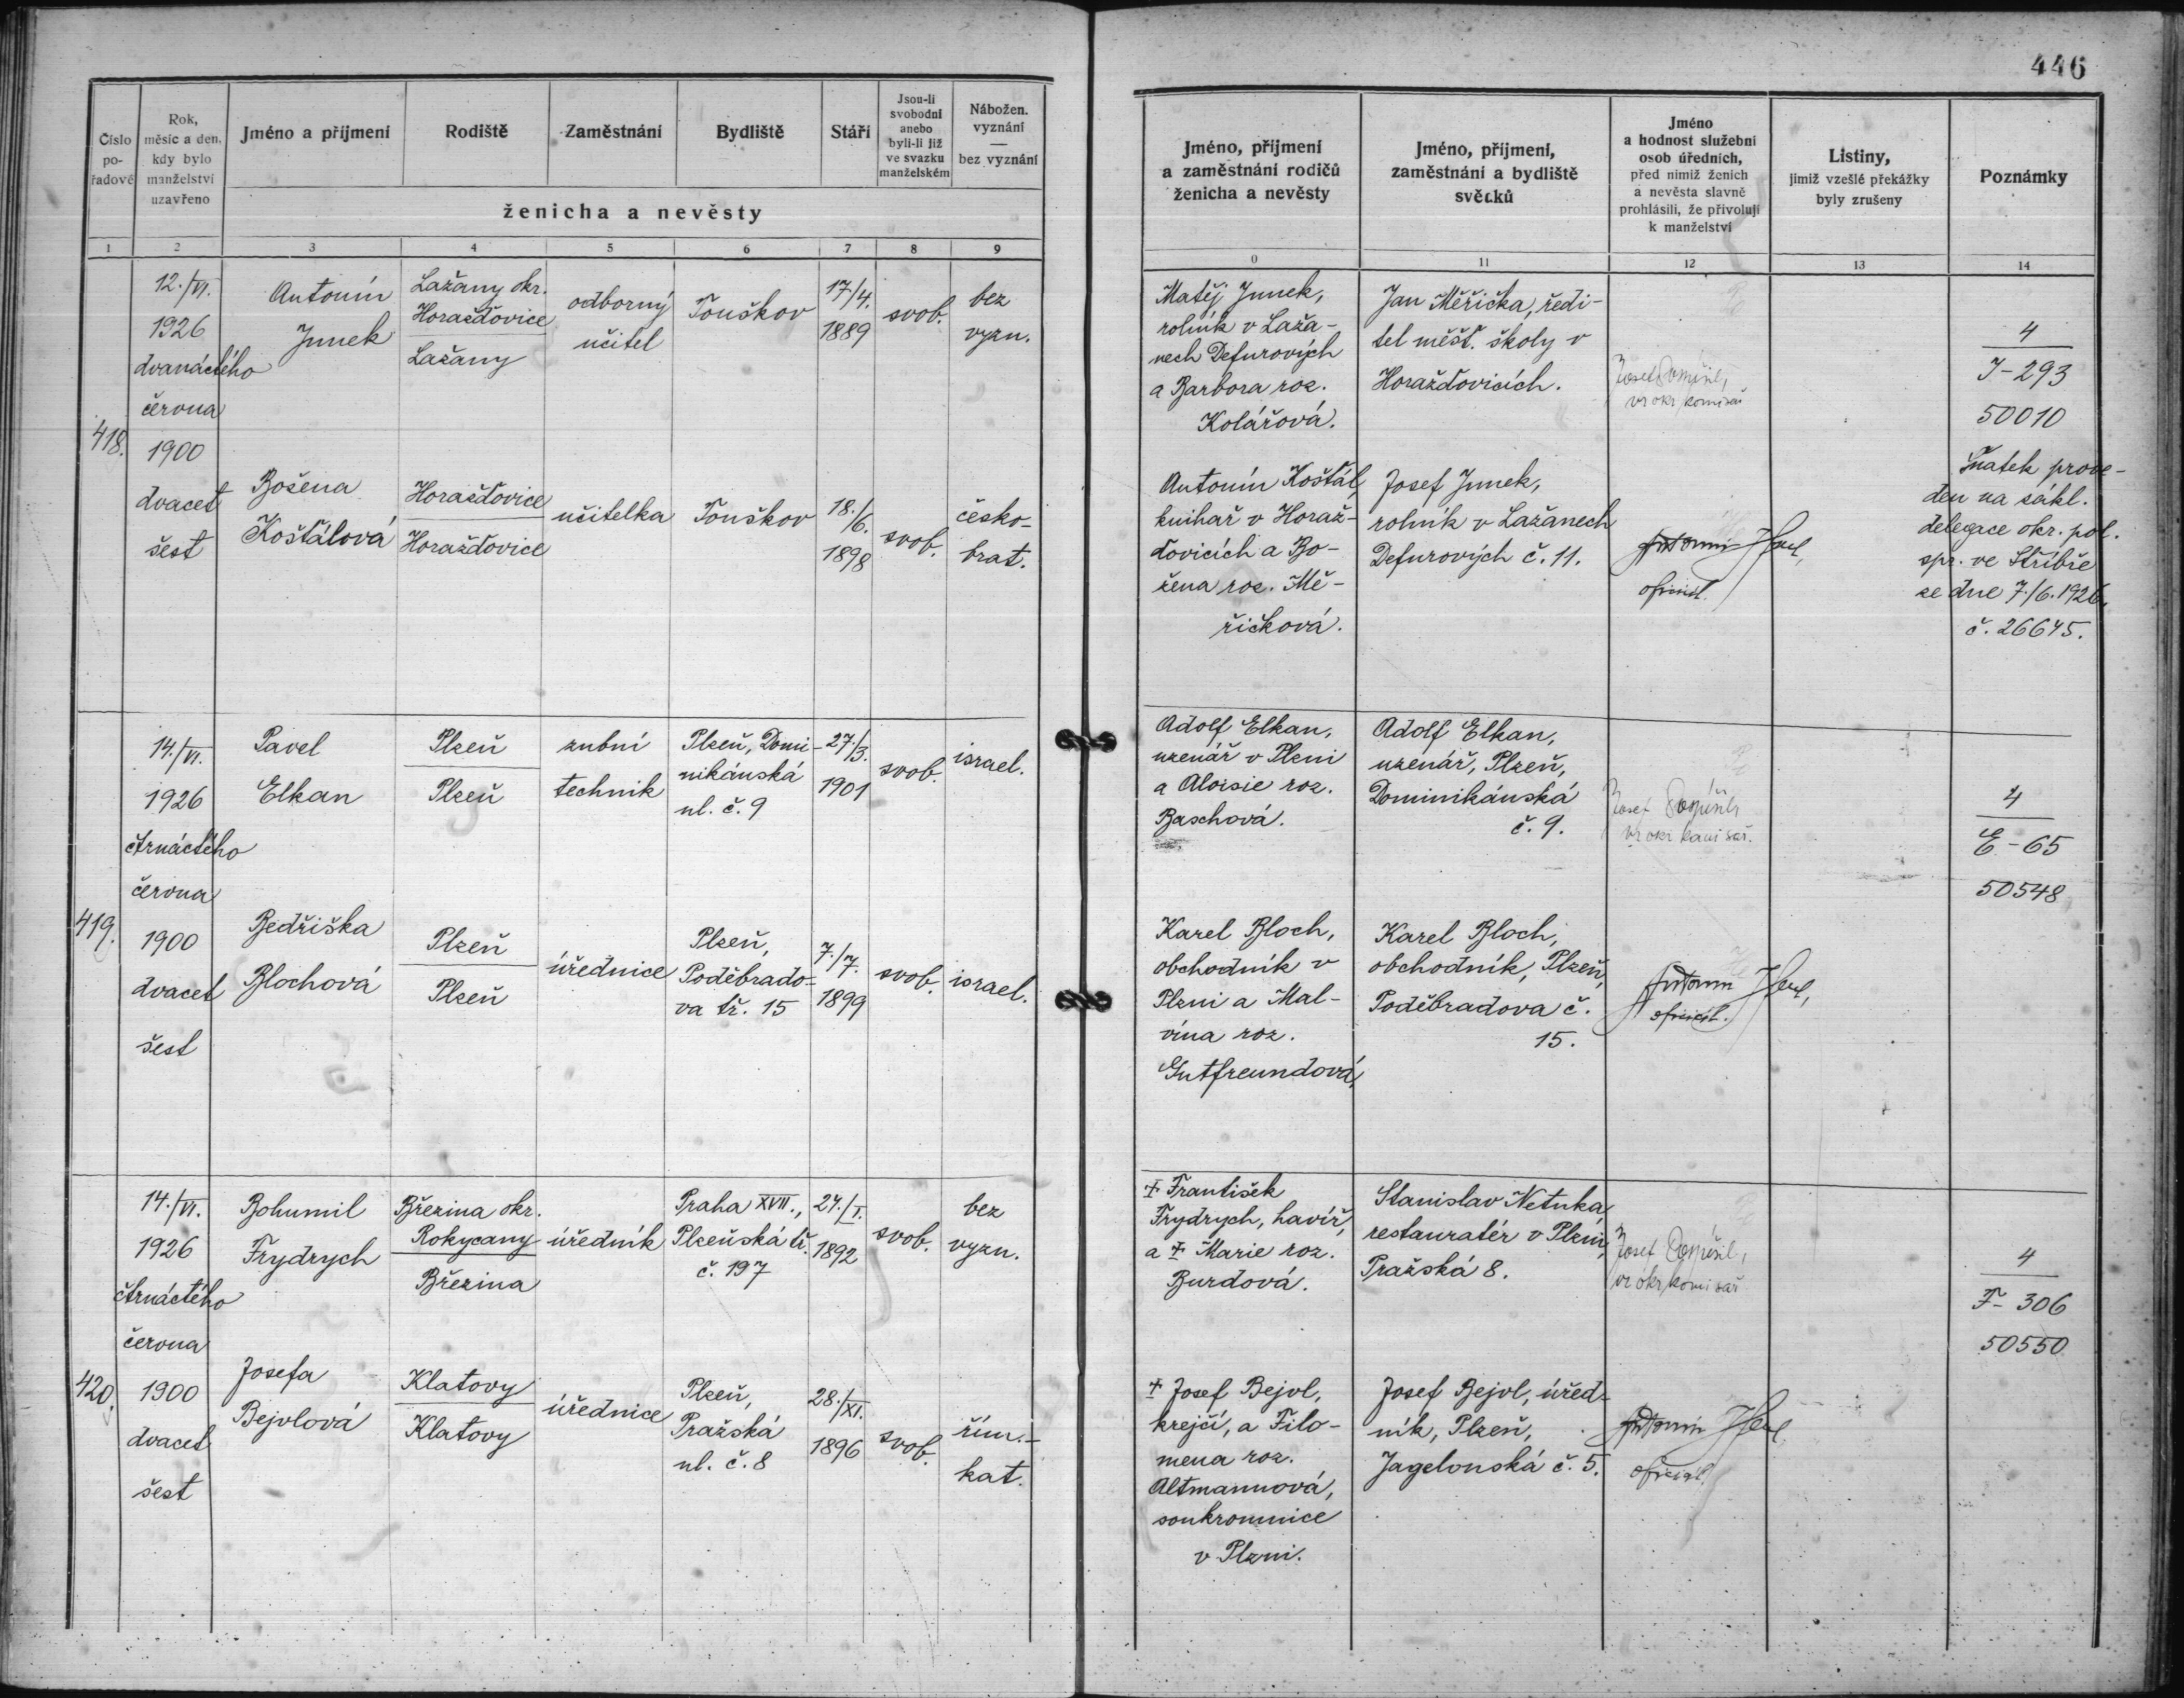 446
Číslo pořadové
Rok, měsíc a den, kdy bylo manželství uzavřeno
Jméno a příjmení
Rodiště
Zaměstnání
Bydliště
Stáří
Jsou-li svobodni anebo byli-li již ve svazku manželském
Nábožen. vyznání — bez vyznání
ženicha a nevěsty
Jméno, příjmení a zaměstnání rodičů ženicha a nevěsty
Jméno, příjmení, zaměstnání a bydliště svědků
Jméno a hodnost služební osob úředních, před nimiž ženich a nevěsta slavně prohlásili, že přivolují k manželství
Listiny, jimiž vzešlé překážky byly zrušeny
Poznámky
1 2 3 4 5 6 7 8 9 0 11 12 13 14
418.
12./VI.
1926
dvanáctého
června
1900
dvacet
šest
Antonín
Junek
Lažany okr.
Horažďovice
Lažany
odborný
učitel
Touškov
17/4.
1889
svob.
bez
vyzn.
Matěj Junek,
rolník v Laža-
nech Defurových
a Barbora roz.
Kolářová.
Jan Měřička, ředi-
tel měšť. školy v
Horažďovicích.
Josef Pospíšil,
vr okr komisař
4
J-293
50010
Božena
Košťálová
Horažďovice
Horažďovice
učitelka
Touškov
18./6.
1898
svob.
česko-
brat.
Antonín Košťál,
knihař v Horaž-
ďovicích a Bo-
žena roz. Mě-
řičková.
Josef Junek,
rolník v Lažanech
Defurových č. 11.
Antonín
oficiál.
Sňatek prove-
den na zákl.
delegace okr. pol.
spr. ve Stříbře
ze dne 7./6. 1926,
č. 26645.
419.
14./VI.
1926
čtrnáctého
června
1900
dvacet
šest
Pavel
Elkan
Plzeň
Plzeň
zubní
technik
Plzeň, Domi-
nikánská
ul. č. 9
27./3.
1901
svob.
israel.
Adolf Elkan,
uzenář v Plzni
a Aloisie roz.
Baschová.
Adolf Elkan,
uzenář, Plzeň,
Dominikánská
č. 9.
Josef Pospíšil,
vr okr komisař.
4
E-65
50548
Bedřiška
Blochová
Plzeň
Plzeň
úřednice
Plzeň,
Poděbrado-
va tř. 15
7./7.
1899
svob.
israel.
Karel Bloch,
obchodník v
Plzni a Mal-
vína roz.
Gutfreundová.
Karel Bloch,
obchodník, Plzeň,
Poděbradova č.
15.
Antonín
oficiál.
420.
14./VI.
1926
čtrnáctého
června
1900
dvacet
šest
Bohumil
Frydrych
Březina okr.
Rokycany
Březina
úředník
Praha XVII.,
Plzeňská tř.
č. 197
24./I.
1892
svob.
bez
vyzn.
† František
Frydrych, havíř,
a † Marie roz.
Burdová.
Stanislav Netuka,
restauratér v Plzni,
Pražská 8.
Josef Pospíšil,
vr okr komisař
4
F-306
50550
Josefa
Bejvlová
Klatovy
Klatovy
úřednice
Plzeň,
Pražská
ul. č. 8
28./XI.
1896
svob.
řím.-
kat.
† Josef Bejvl,
krejčí, a Filo-
mena roz.
Altmannová,
soukromnice
v Plzni.
Josef Bejvl, úřed-
ník, Plzeň,
Jagelonská č. 5.
Antonín
oficiál.